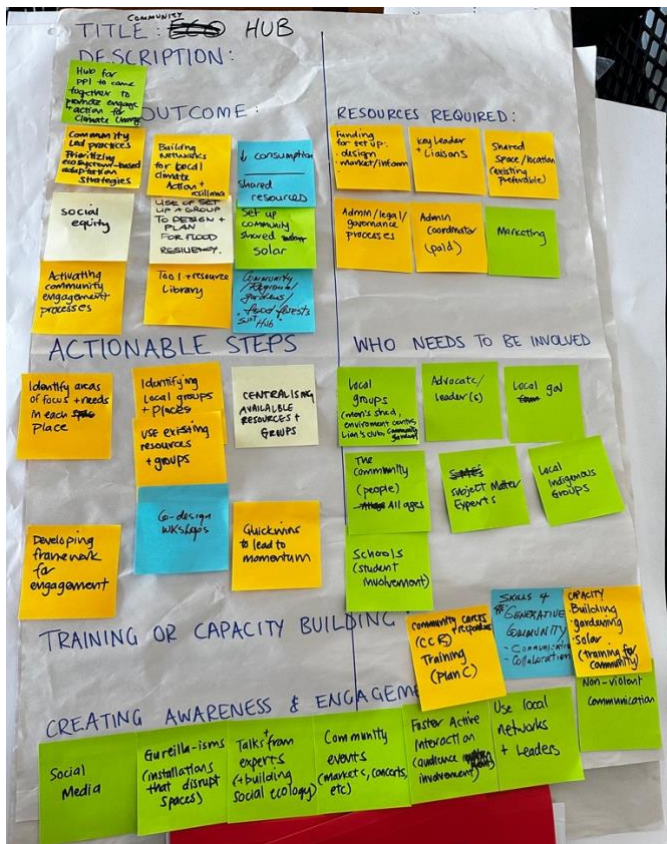 COMMUNITY
TITLE: HUB
DESCRIPTION:
Hub for
ppl to come
together to
promote engage
+ action for
Climate Change
OUTCOME:
Community
Led practices
Prioritizing
ecosystem-based
adaptation
strategies
Building
Networks
for local
climate
Action +
resilience
↓ consumption
shared
resources
Social
equity
USE OF SET
UP A GROUP
TO DESIGN +
PLAN
FOR FLOOD
RESILIENCY.
Set up
community
shared
solar
Activating
community
engagement
processes
Tool + resource
Library
Community
/Regional
gardens/
food forests
Hub
RESOURCES REQUIRED:
Funding
for set up:
· design
· market/inform
Key leader
+ Liaisons
Shared
Space/location
(existing
preferable)
Admin/legal/
governance
processes
Admin
Coordinator
(paid)
Marketing
ACTIONABLE STEPS
Identify areas
of focus + needs
in each
Place
Identifying
local groups
+ places
USE existing
resources
+ groups
CENTRALISING
AVAILABLE
RESOURCES +
GROUPS
Developing
framework
for
engagement
Co-design
WKShops
Quickwins
to lead to
momentum
WHO NEEDS TO BE INVOLVED
Local
groups
(men's shed,
enviroment centre,
Lion's club,
Advocate/
leader(s)
Local gov
The
community
(people)
All ages
Subject Matter
Experts
Local
Indigenous
Groups
Schools
(student
Involvement)
TRAINING OR CAPACITY BUILDING:
Community carers
+ responders
(CCR)
Training
(plan C)
SKILLS 4
GENERATIVE
COMMUNITY
- Communication
- Collaboration
CAPACITY
Building
· gardening
· Solar
(training for
community)
Non-violent
Communication
CREATING AWARENESS & ENGAGEM
Social
Media
Gureilla-isms
(installations
that disrupt
spaces)
Talks from
experts
(+ building
social ecology)
Community
events
(markets, concerts,
etc)
Foster Active
Interaction
(audience
involvement)
Use local
networks
+ Leaders